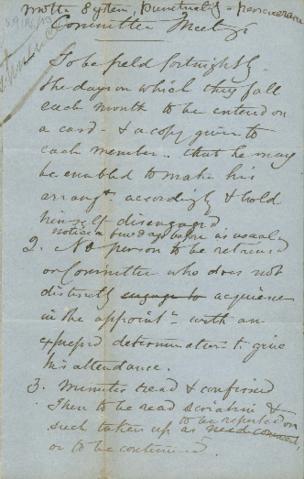 motto System, punctuality - perseverance
Committee Meetings
To be held fortnightly.
the days on which they fall
each month to be entered on
a card - & a copy given to
each member. that he may
be enabled to make his
arrangts accordingly & hold
himself disengaged
notice a few days before as usual
2. No person to be retained
on Committee who does not
distinctly engage to acquiesce
in the appointt with an
expressed determination to give
his attendance.
3. Minutes read & confirmed
Then to be read seriatim &
to be reported on
such taken up as need comment
or to be continued.